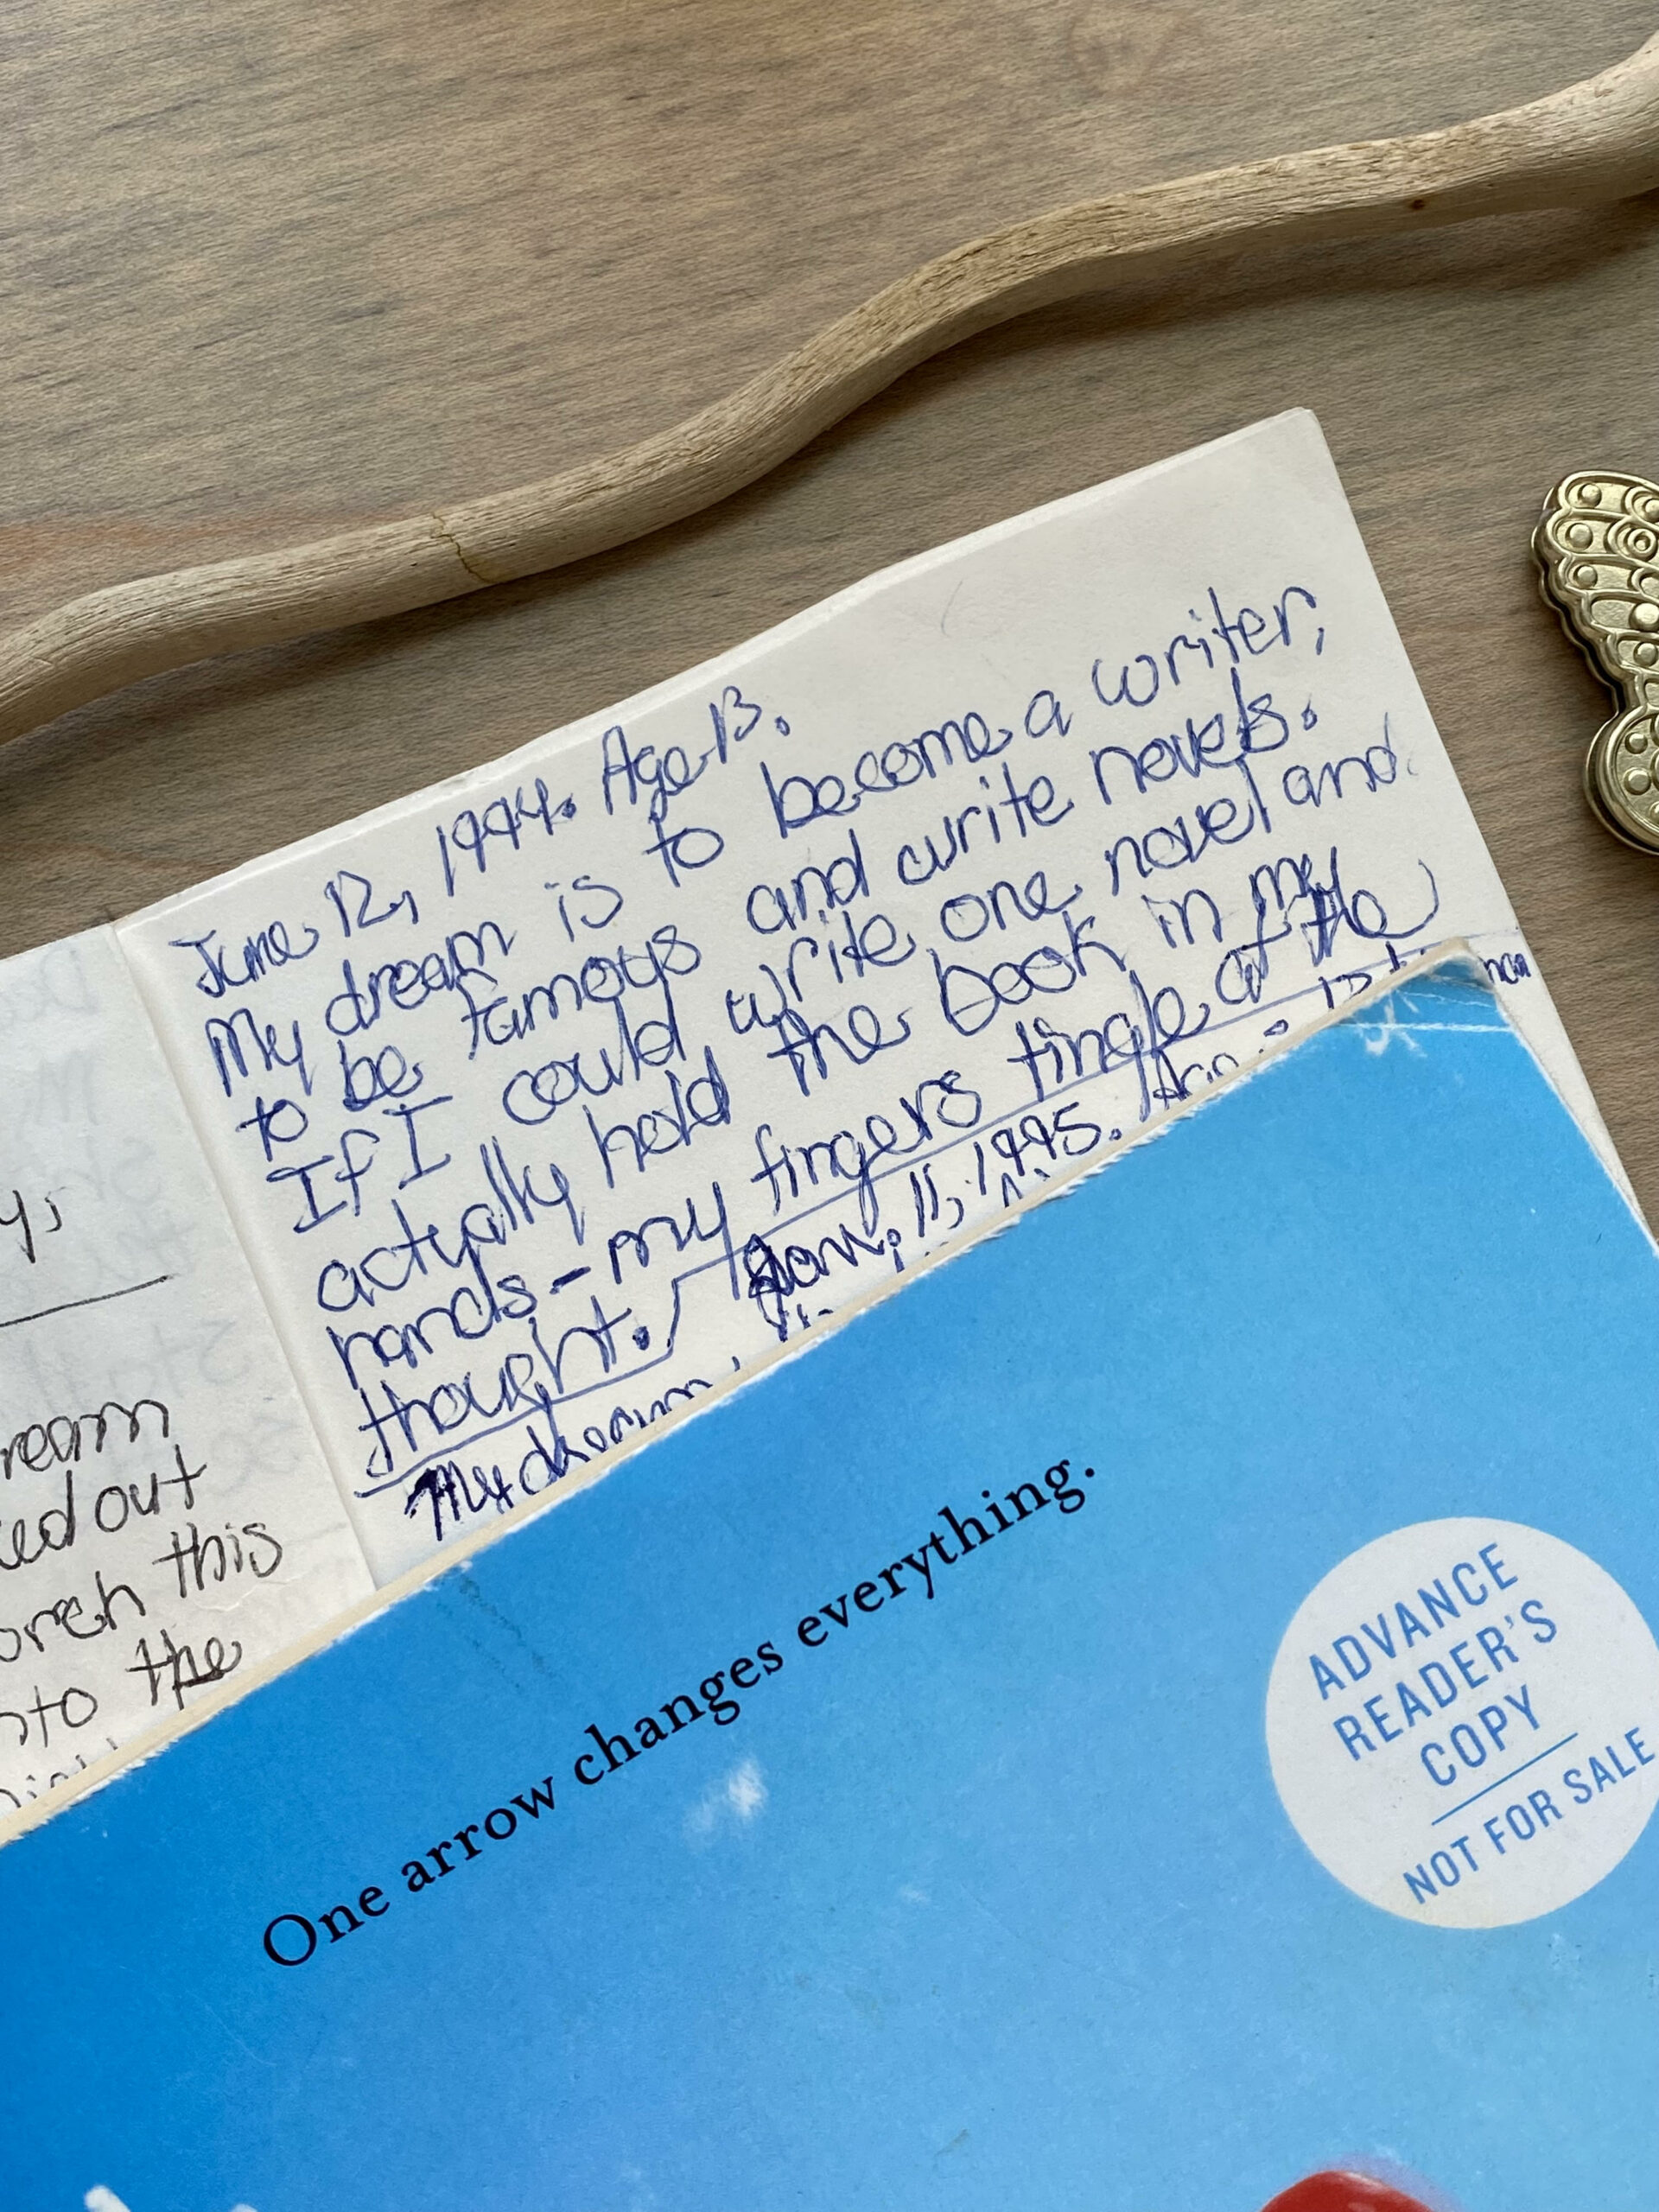 June 12, 1994. Age 13.
My dream is to become a writer,
to be famous and write novels.
If I could write one novel and
actually hold the book in my
hands - my fingers tingle at the
thought.
11, 1995.
My dream
ream
out
this
to the
One arrow changes everything.
ADVANCE
READER'S
COPY
NOT FOR SALE